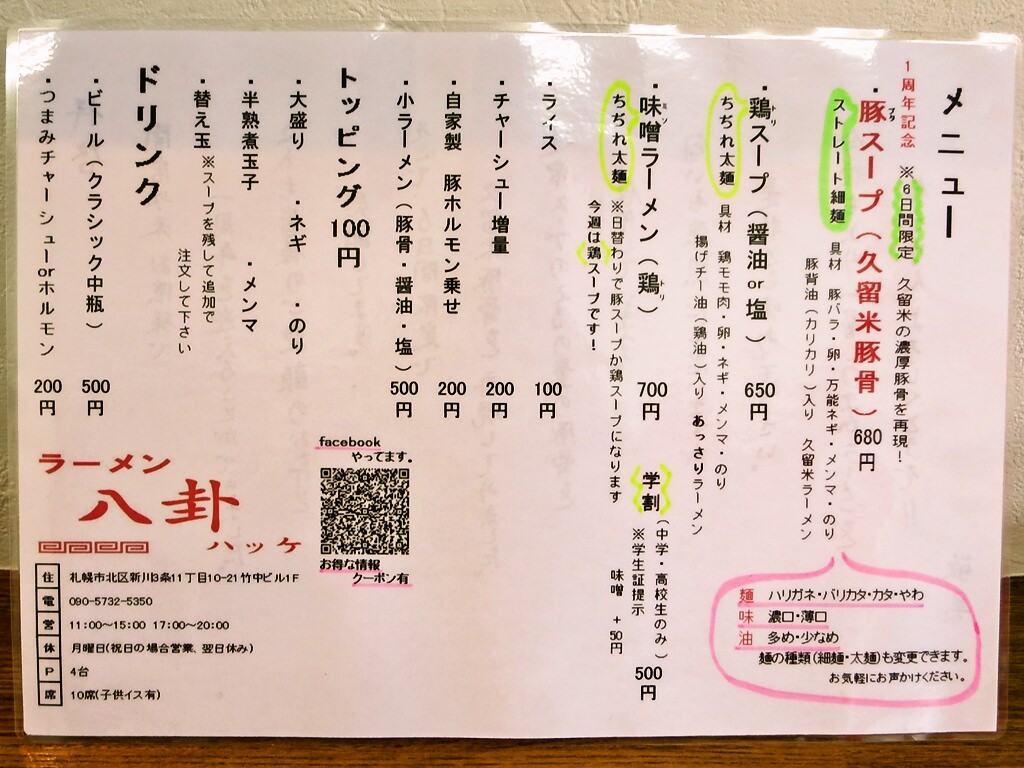 メニュー
1周年記念 ※6日間限定 久留米の濃厚豚骨を再現！
・豚スープ（久留米豚骨）680円
ブタ
ストレート細麺 具材 豚バラ・卵・万能ネギ・メンマ・のり
豚背油（カリカリ）入り 久留米ラーメン
麺 ハリガネ・バリカタ・カタ・やわ
味 濃口・薄口
油 多め・少なめ
麺の種類（細麺・太麺）も変更できます。
お気軽にお声かけください。
・鶏スープ（醤油or塩） 650円
トリ
ちぢれ太麺 具材 鶏モモ肉・卵・ネギ・メンマ・のり
揚げチー油（鶏油）入り あっさりラーメン
・味噌ラーメン（鶏） 700円
ミソ
トリ
ちぢれ太麺 ※日替わりで豚スープか鶏スープになります
今週は鶏スープです！
学割（中学・高校生のみ） 500円
※学生証提示
味噌 +50円
・ライス 100円
・チャーシュー増量 200円
・自家製 豚ホルモン乗せ 200円
・小ラーメン（豚骨・醤油・塩） 500円
トッピング 100円
・大盛り ・ネギ ・のり
・半熟煮玉子 ・メンマ
・替え玉 ※スープを残して追加で
注文して下さい
ドリンク
・ビール（クラシック中瓶） 500円
・つまみチャーシューorホルモン 200円
facebook
やってます。
お得な情報
クーポン有
ラーメン
八卦
ハッケ
住 札幌市北区新川3条11丁目10-21竹中ビル1F
電 090-5732-5350
営 11:00～15:00 17:00～20:00
休 月曜日(祝日の場合営業、翌日休み)
P 4台
席 10席(子供イス有)